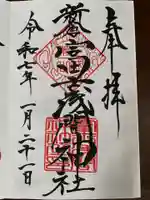 奉拝
富士浅間神社
令和七年一月二十一日